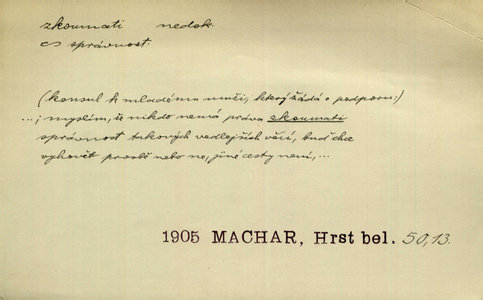 zkoumati nedok.
co správnost.
(konsul k mladému muži, který žádá o podporu:)
...; myslím, že nikdo nemá práva zkoumati
správnost takových vedlejších věcí, buď chce
vyhovět prosbě nebo ne, jiné cesty není, ...
1905 MACHAR, Hrst bel. 50,13.